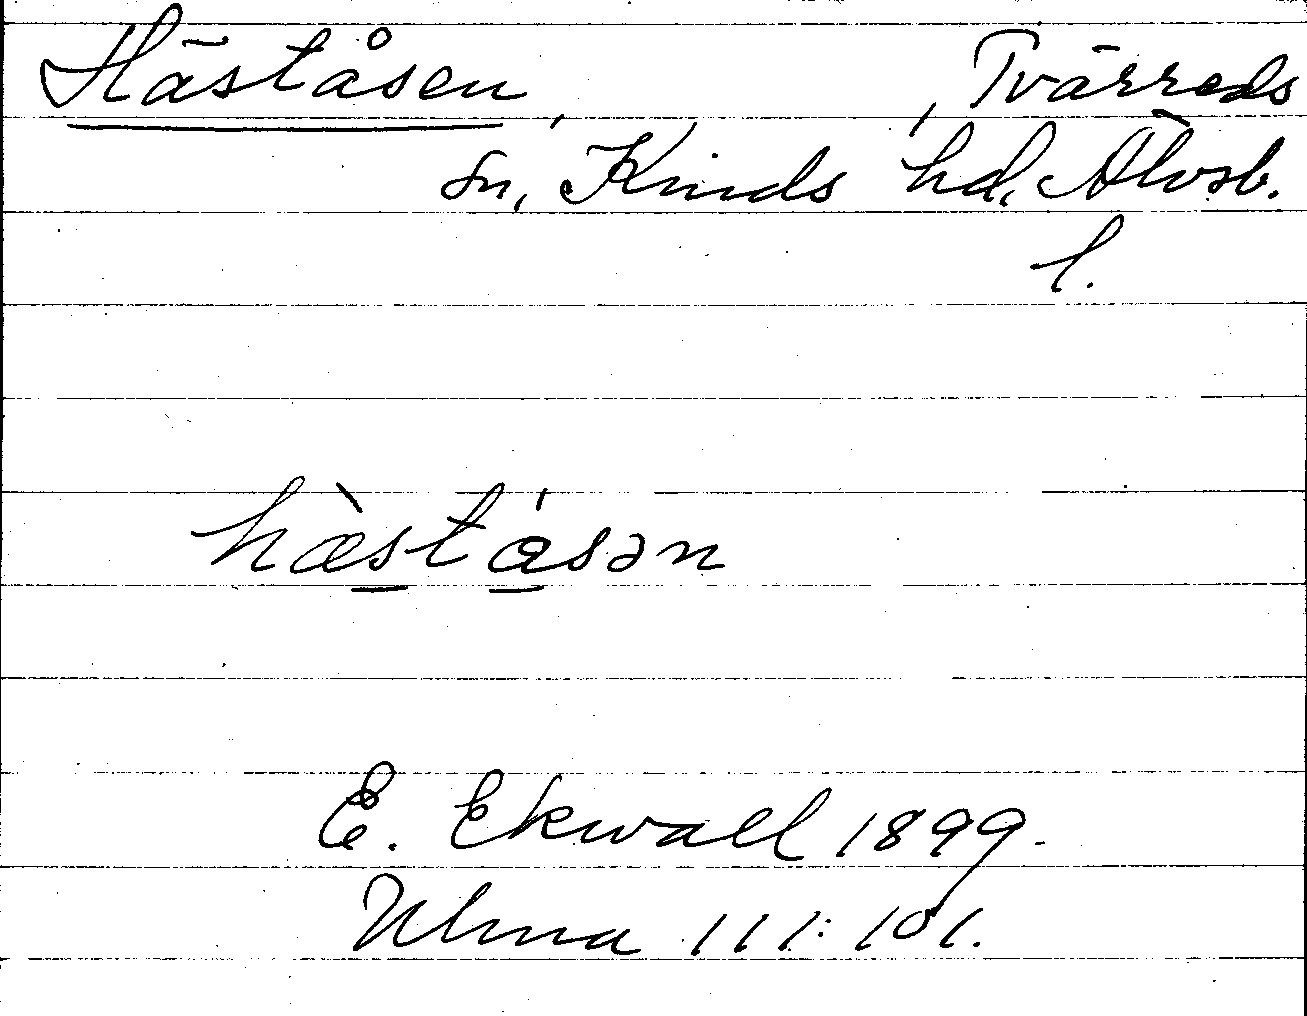 Häståsen, , Tvärreds
sn, Kinds hd, Älvsb.
l.
hæ̀stásən
E. Ekwall 1899.
Ulma 111:101.